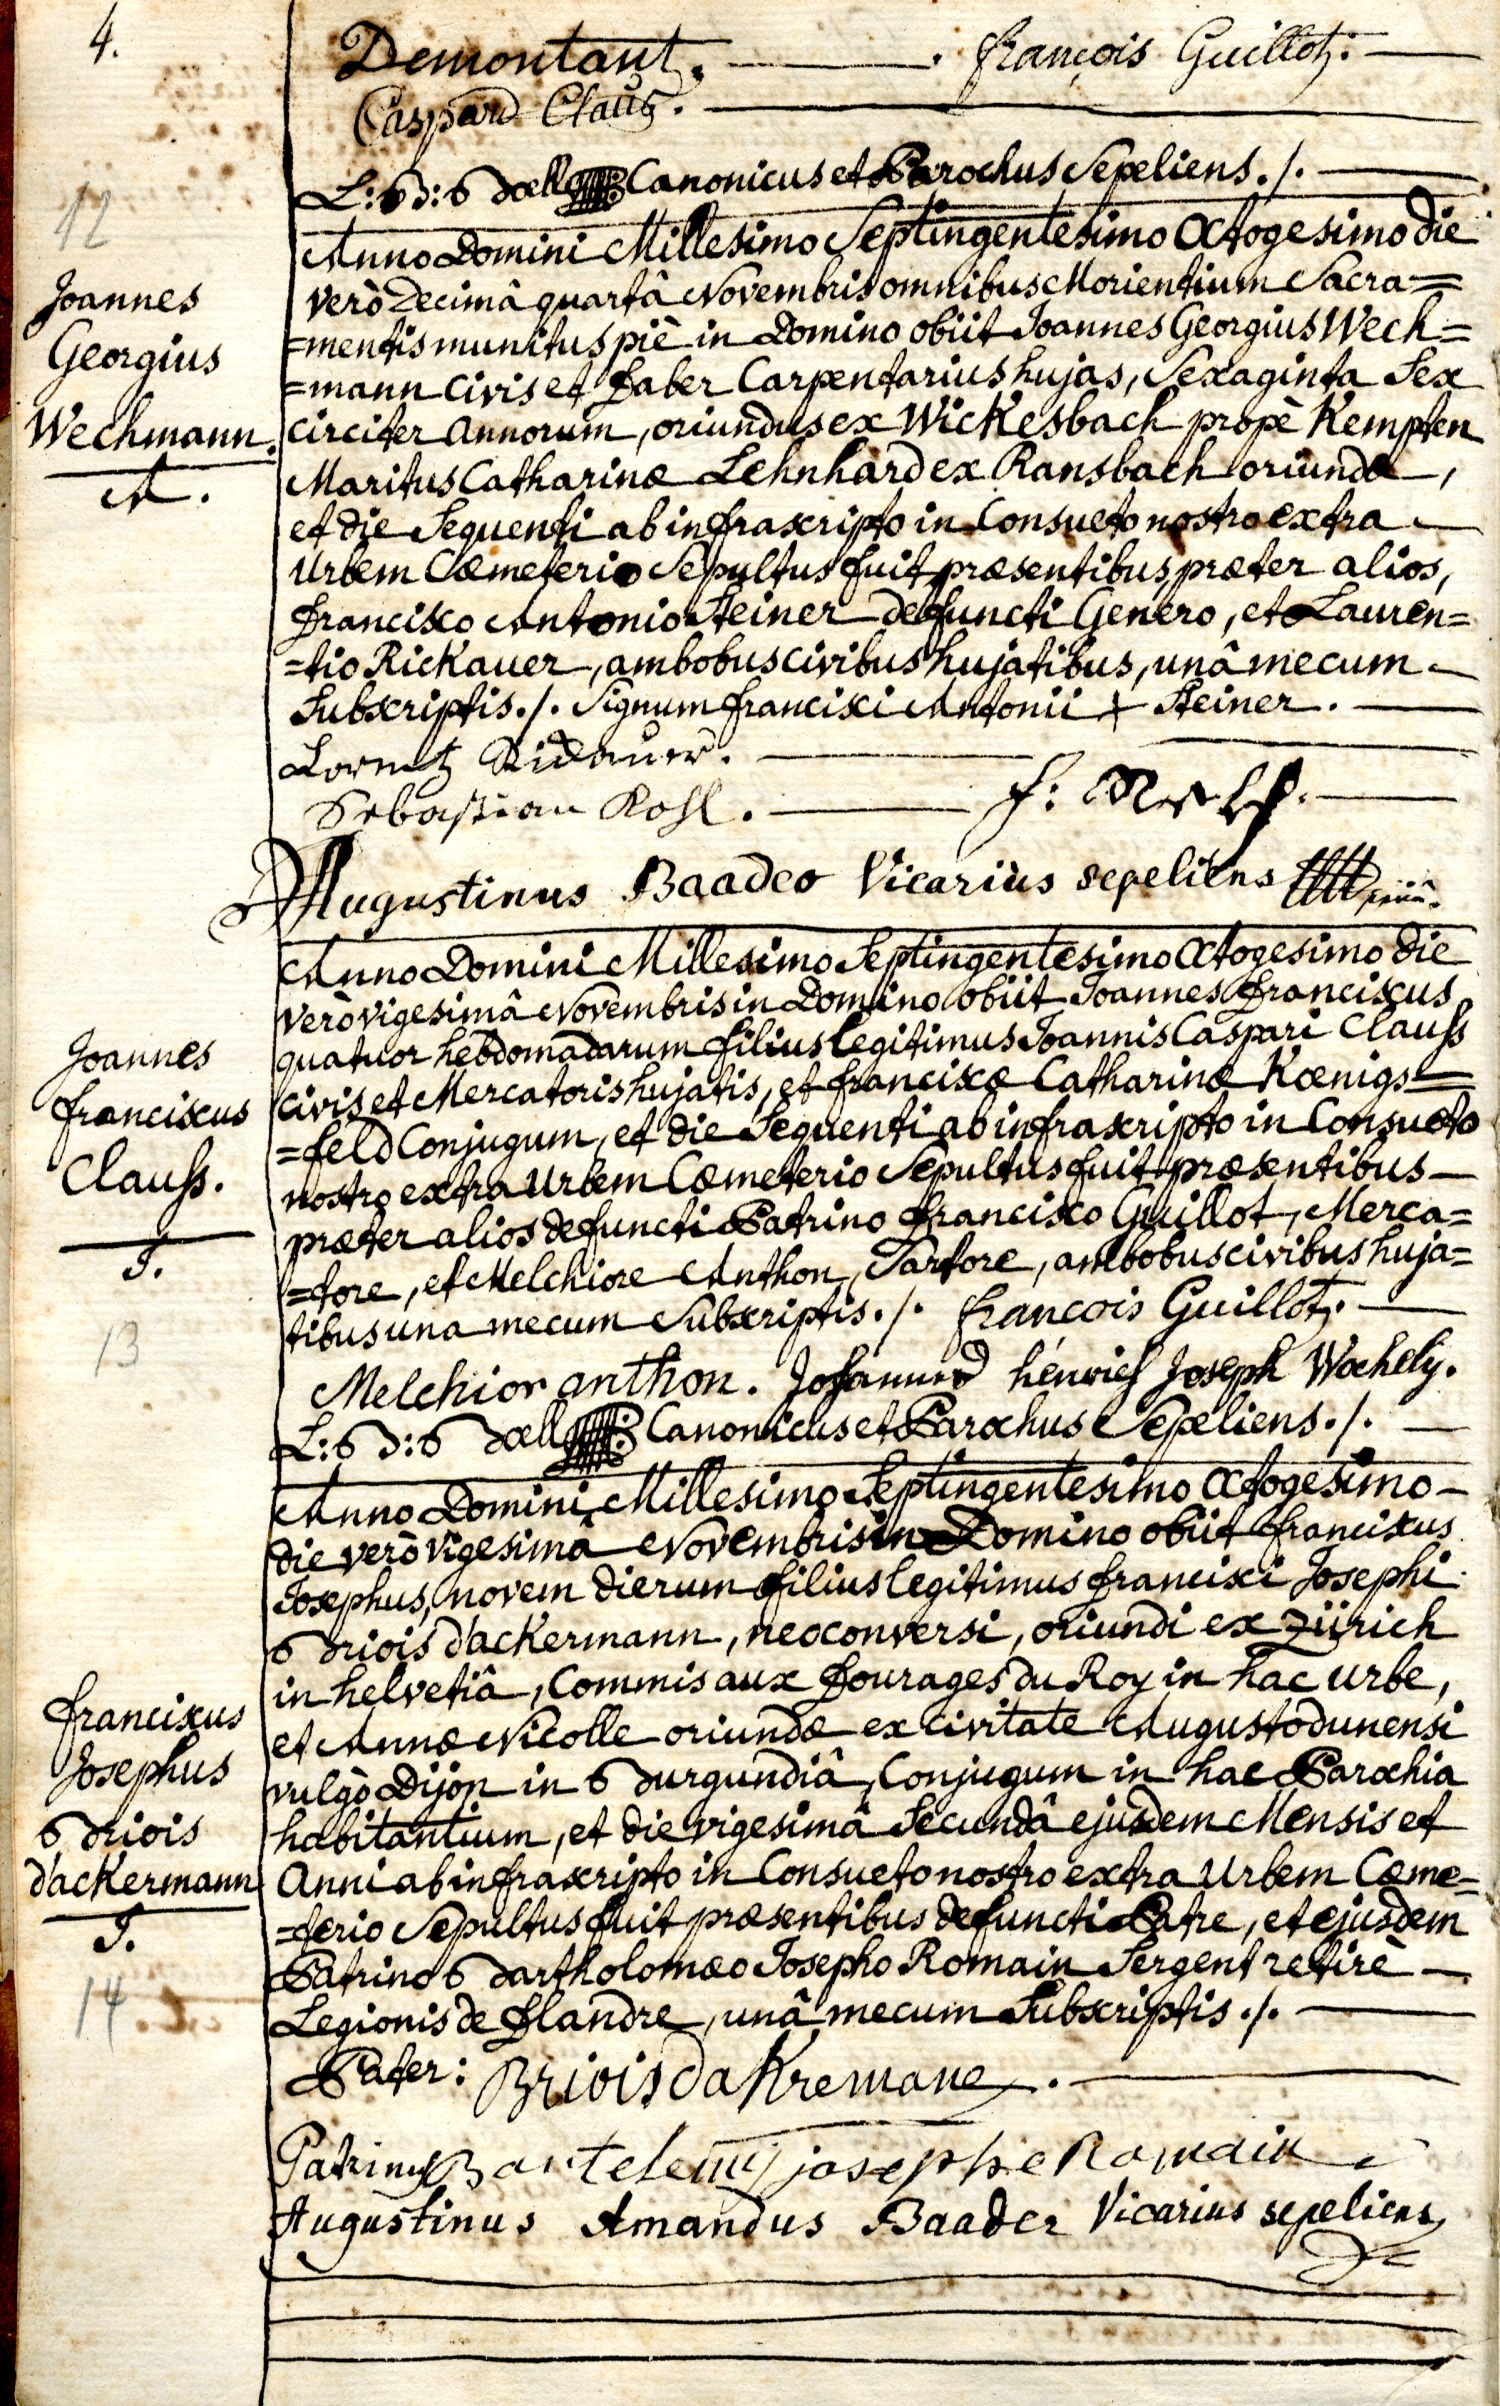 4.
Demontaut. François Guillot.
Caspard Claus.
Canonicus et Parochus Sepeliens ./.
12
Joannes
Georgius
Wechmann.
A.
Anno Domini Millesimo Septingentesimo Octogesimo die
verò decimâ quartâ Novembris omnibus Morientium Sacra=
=mentis munitus piè in Domino obiit Joannes Georgius Wech=
=mann civis et faber Carpentarius hujas, Sexaginta Sex
circiter Annorum, oriundus ex Wickesbach propè Kempten
Maritus Catharinæ Lehnhard ex Ransbach oriundæ,
et die Sequenti ab infrascripto in Consueto nostro extra
Urbem Cœmeterio Sepultus fuit præsentibus præter alios,
Francisco Antonio Steiner defuncti Genero, et Lauren=
=tio Rickauer, ambobus civibus hujatibus, unâ mecum
Subscriptis ./. Signum Francisci Antonii + Steiner.
Lorentz Ridauer.
Sebastian Kohl.
Augustinus Baader Vicarius sepeliens
Joannes
Franciscus
Clauss.
J.
13
Anno Domini Millesimo Septingentesimo Octogesimo die
verò vigesimâ Novembris in Domino obiit Joannes Franciscus
quatuor hebdomadarum filius legitimus Joannis Caspari Clauss
civis et Mercatoris hujatis, et Franciscæ Catharinæ Kœnigs=
=feld Conjugum, et die Sequenti ab infrascripto in Consueto
nostro extra Urbem Cœmeterio Sepultus fuit præsentibus
præter alios defuncti Patrino Francisco Guillot, Merca=
=tore, et Melchiore Anthon, Sartore, ambobus civibus huja=
tibus una mecum Subscriptis ./. François Guillot.
Melchior anthon. Johannes henrich Joseph Wochely.
Canonicus et Parochus Sepeliens ./.
Franciscus
Josephus
Briois
d'ackermann
J.
14
Anno Domini Millesimo Septingentesimo Octogesimo
die verò vigesimâ Novembris in Domino obiit Franciscus
Josephus, novem dierum filius legitimus Francisci Josephi
Briois d'ackermann, neoconversi, oriundi ex Zürich
in helvetiâ, Commis aux fourages du Roy in hac urbe,
et Annæ Nicolle oriundæ ex civitate Augustodunensi
vulgò Dijon in Burgundiâ, Conjugum in hac Parochia
habitantium, et die vigesimâ Secundâ ejusdem Mensis et
Anni ab infrascripto in Consueto nostro extra Urbem Cœme=
=terio Sepultus fuit præsentibus defuncti Patre, et ejusdem
Patrino Bartholomæo Josepho Romain Sergent retirè
Legionis de Flandre, unâ mecum Subscriptis ./.
Pater: Briois dakremane.
Patrinus Bartelemy josephe Romain
Augustinus Amandus Baader Vicarius sepeliens